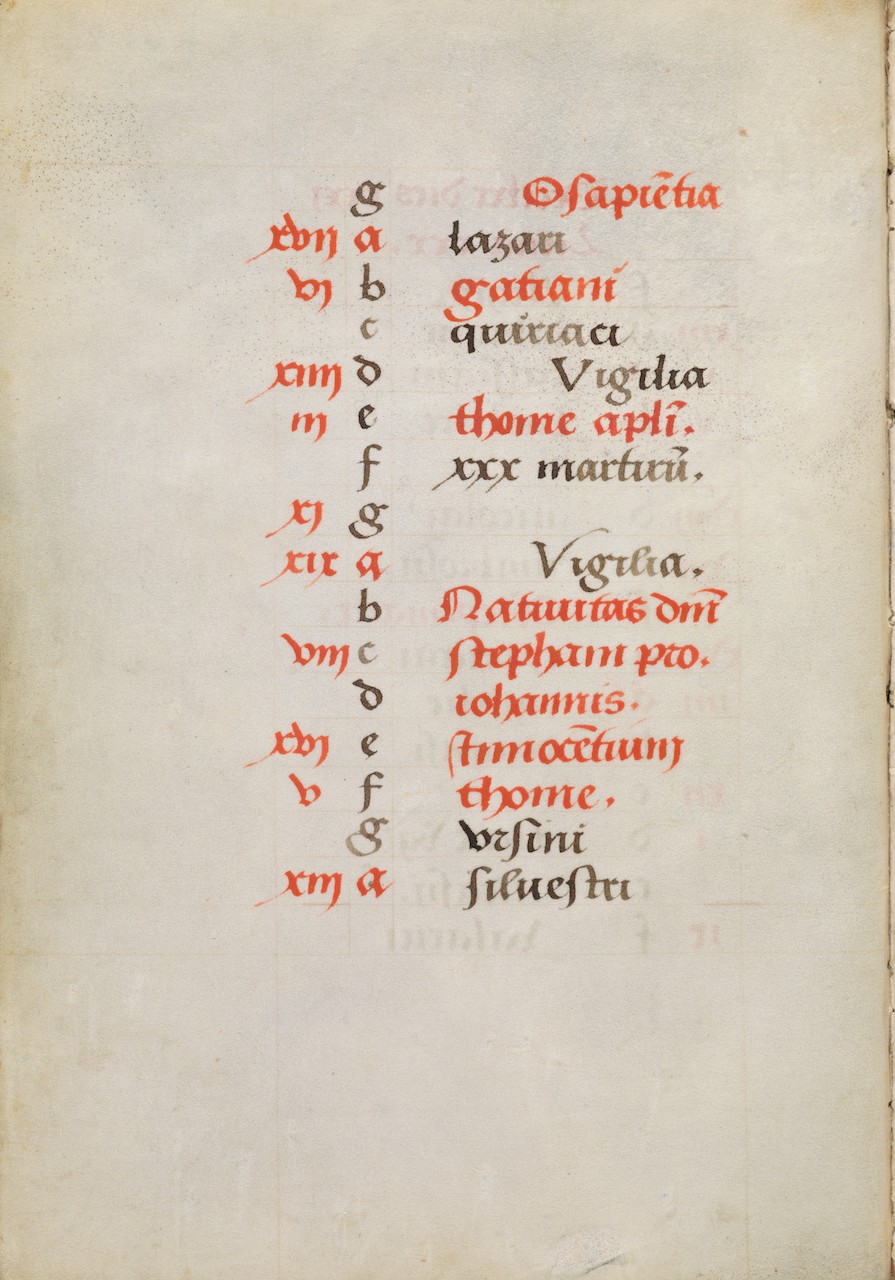 g Osapiẽtia
xvij a lazari
vj b gatiani
c quiriaci
xiiij d Vigilia
iij e thome apłi.
f xxx martirũ.
xj g
xix a Vigilia.
b Natiuitas dm̃i
viij c stephani pro.
d iohannis.
xvj e st innocẽtium
v f thome.
g vrsini
xiij a siluestri